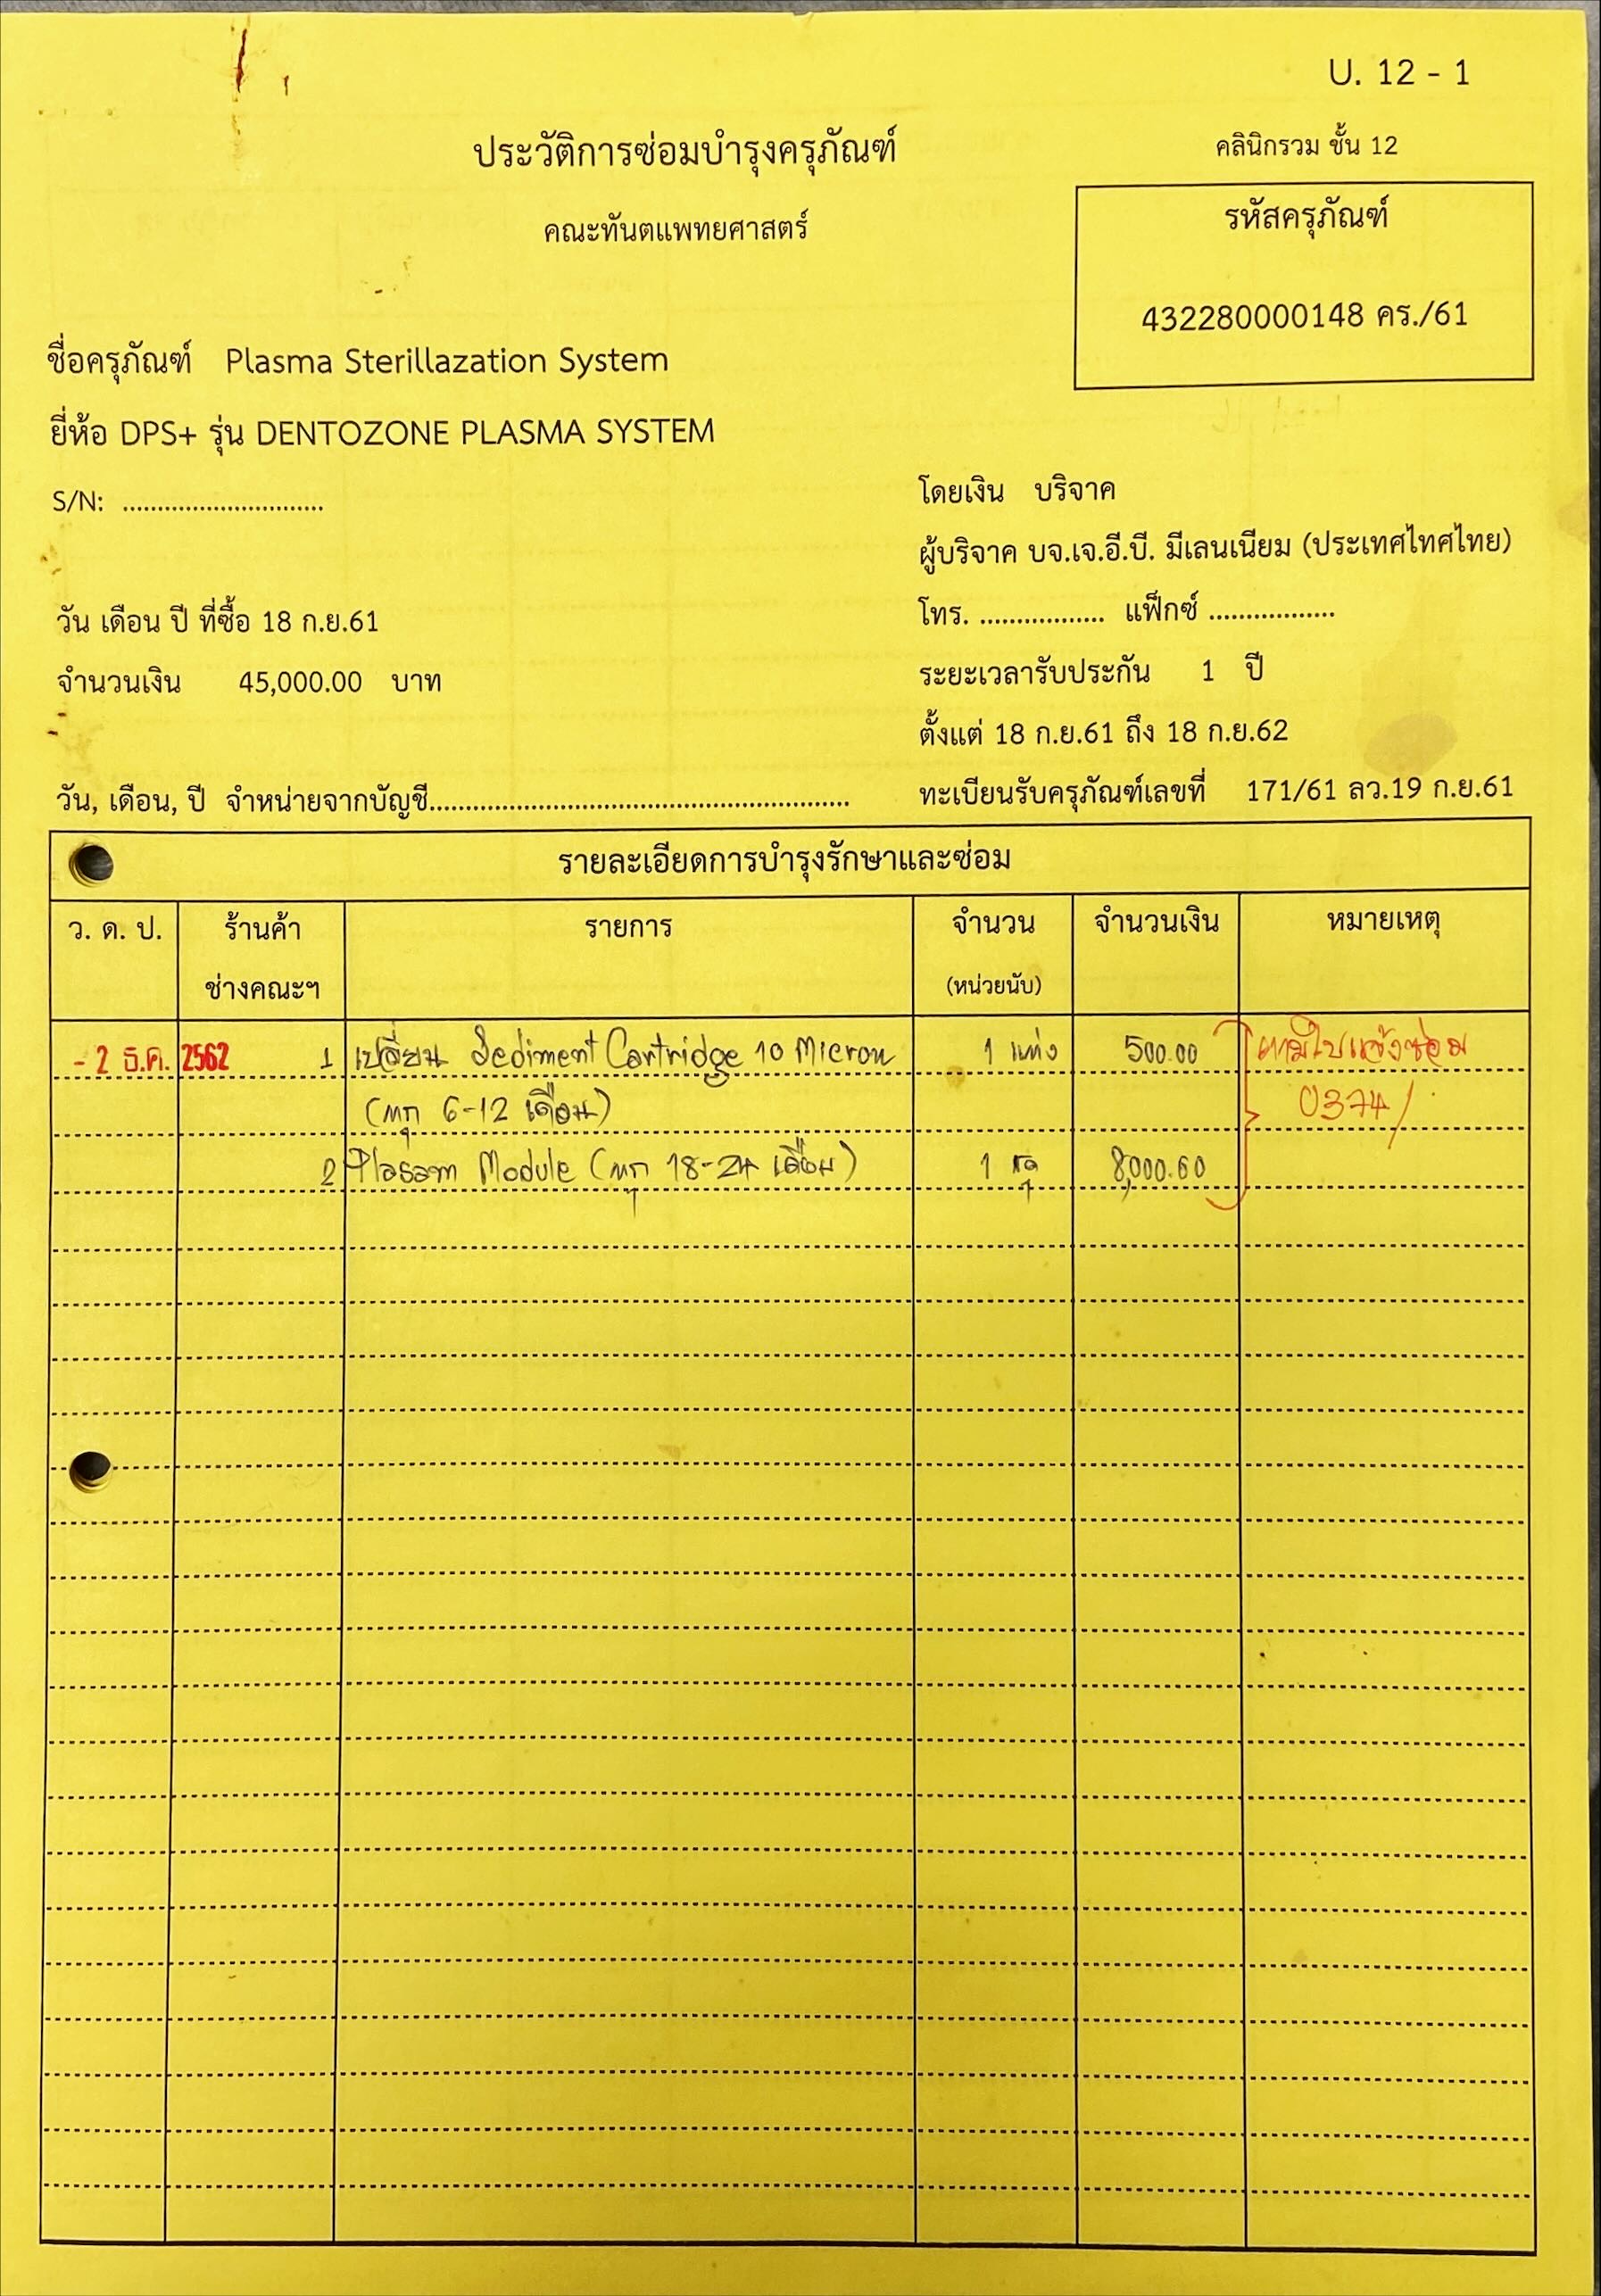 U. 12 - 1
ประวัติการซ่อมบำรุงครุภัณฑ์
คลินิกรวม ชั้น 12
คณะทันตแพทยศาสตร์
รหัสครุภัณฑ์
432280000148 คร./61
ชื่อครุภัณฑ์ Plasma Sterillazation System
ยี่ห้อ DPS+ รุ่น DENTOZONE PLASMA SYSTEM
S/N: .............................
โดยเงิน บริจาค
ผู้บริจาค บจ.เจ.อี.บี. มีเลนเนียม (ประเทศไทศไทย)
วัน เดือน ปี ที่ซื้อ 18 ก.ย.61
โทร. ................. แฟ็กซ์ .................
จำนวนเงิน 45,000.00 บาท
ระยะเวลารับประกัน 1 ปี
ตั้งแต่ 18 ก.ย.61 ถึง 18 ก.ย.62
วัน, เดือน, ปี จำหน่ายจากบัญชี.........................................................
ทะเบียนรับครุภัณฑ์เลขที่ 171/61 ลว.19 ก.ย.61
รายละเอียดการบำรุงรักษาและซ่อม
ว. ด. ป. ร้านค้า รายการ จำนวน จำนวนเงิน หมายเหตุ
ช่างคณะฯ (หน่วยนับ)
- 2 ธ.ค. 2562 1 เปลี่ยน Sediment Cartridge 10 Micron 1 แท่ง 500.00 ตามใบแจ้งซ่อม
(ทุก 6-12 เดือน) 0374/
2 Plasam Module (ทุก 18-24 เดือน) 1 ชุด 8,000.00